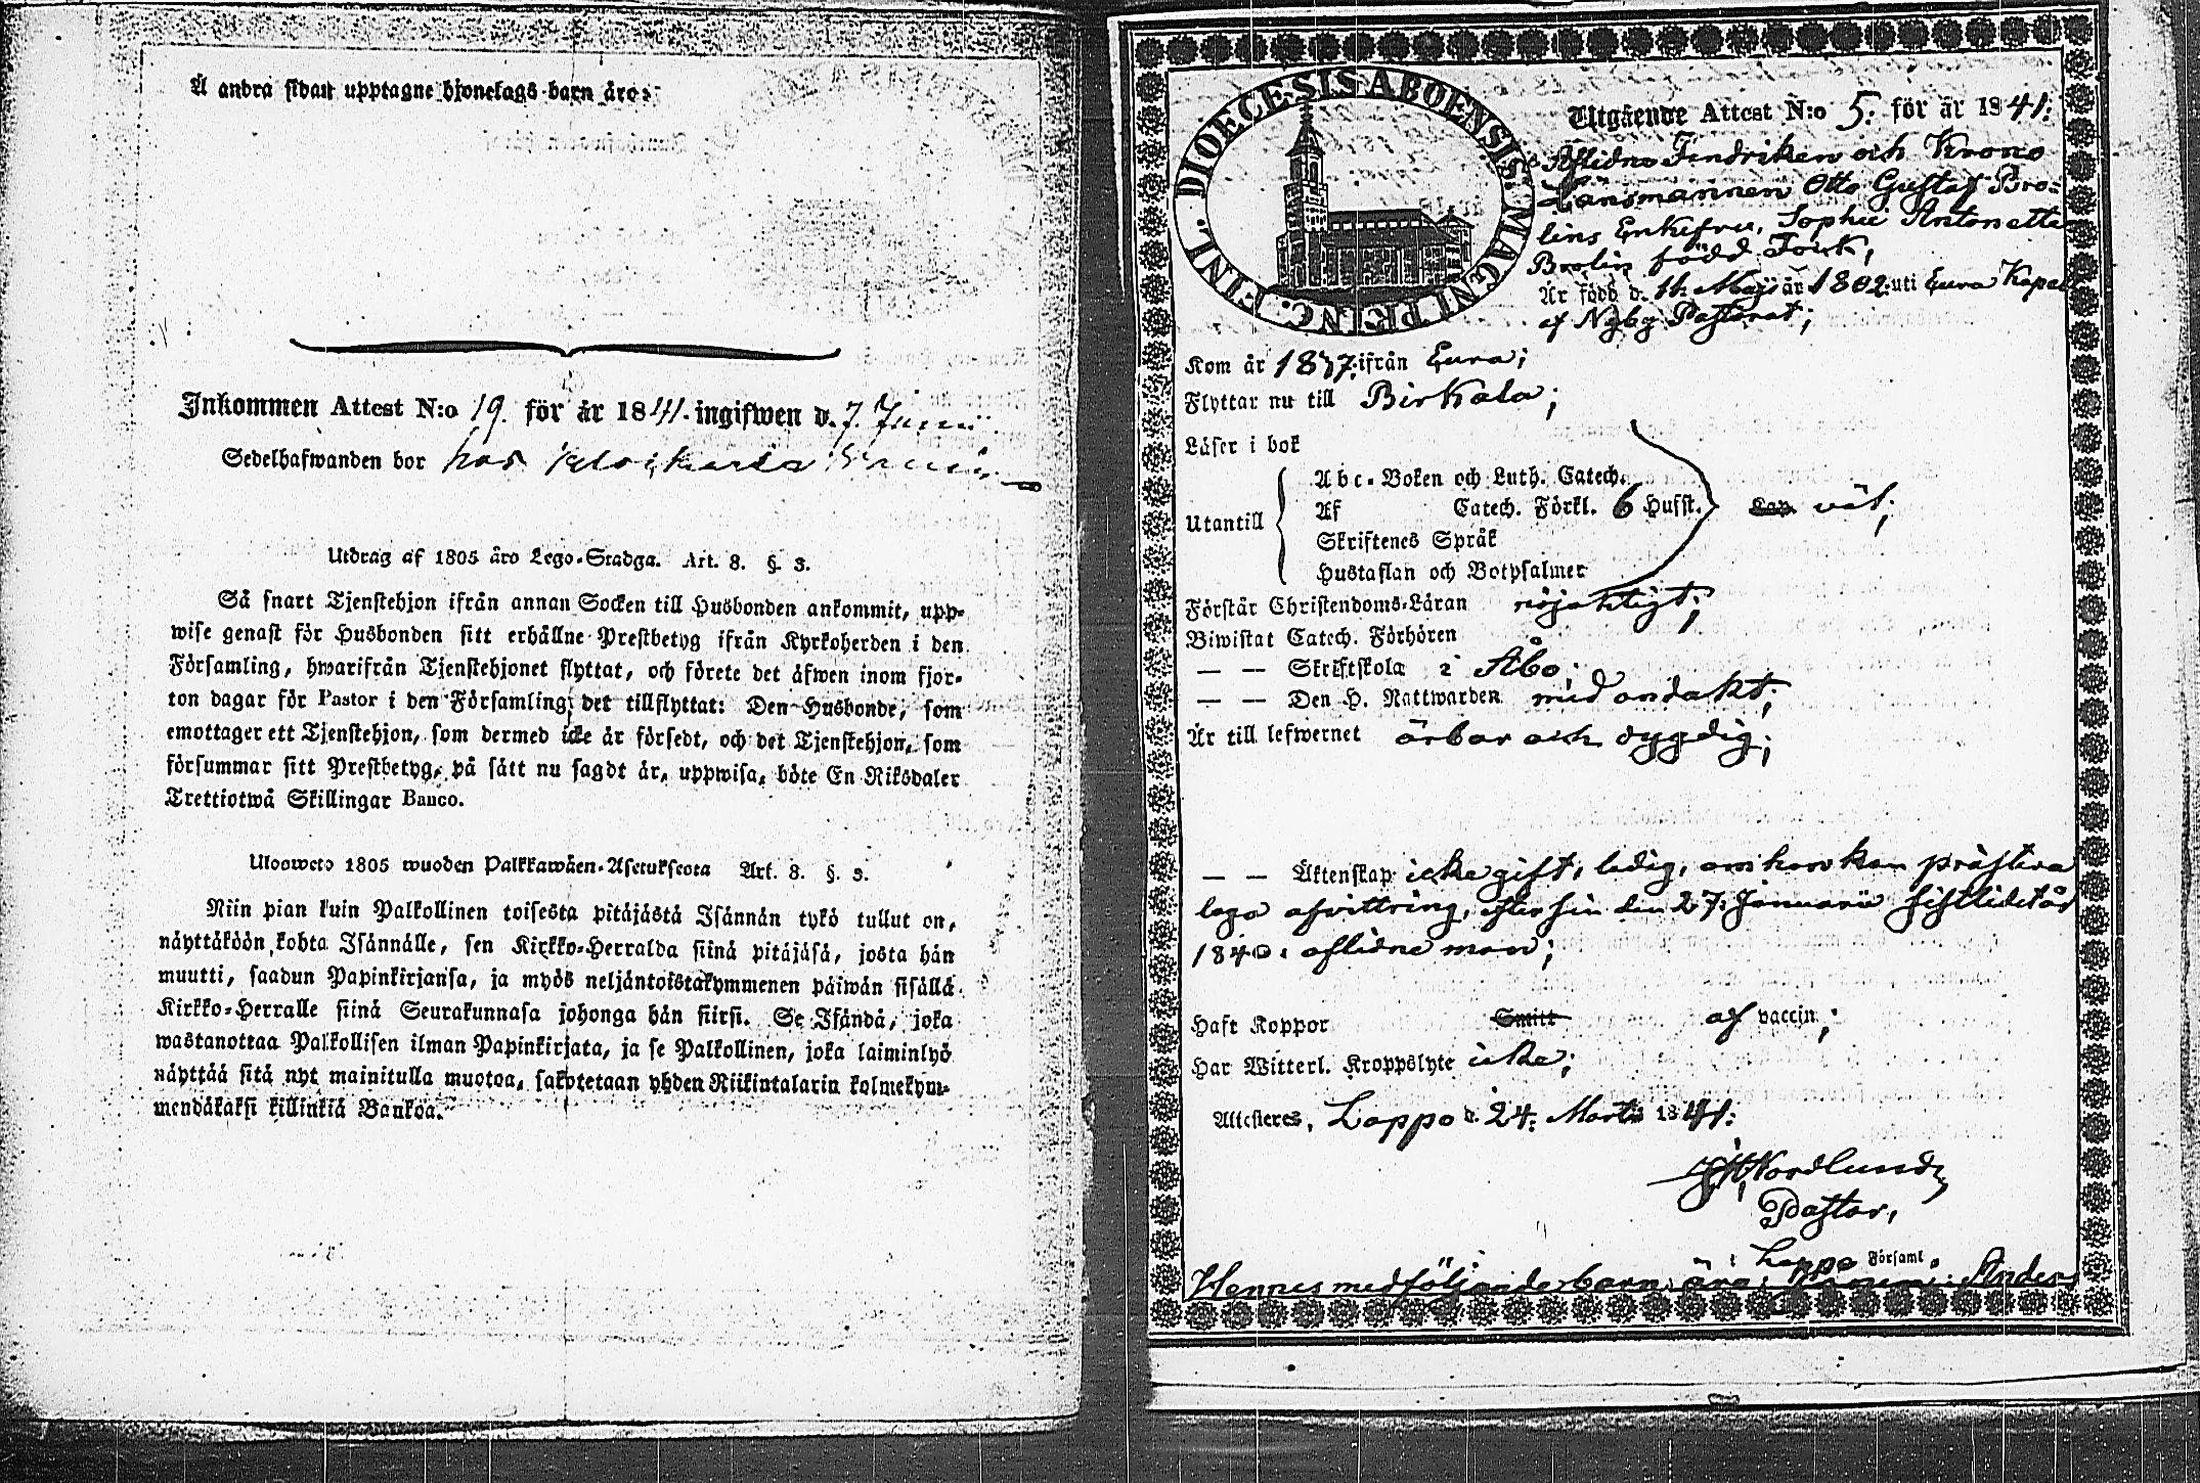 Å andra sidan upptagne hjonelags barn äro:
Inkommen Attest N:o 19. för år 1841. ingifwen d. 7. Junii
Sedelhafwanden bor hos
Utdrag af 1805 åro Lego-Stadga. Art. 8. §. 3.
Så snart Tjenstehjon ifrån annan Socken till Husbonden ankommit, upp-
wise genast för Husbonden sitt erhållne Prestbetyg ifrån Kyrkoherden i den
Församling, hwarifrån Tjenstehjonet flyttat, och förete det äfwen inom fjor-
ton dagar för Pastor i den Församling, det tillflyttat: Den Husbonde, som
emottager ett Tjenstehjon, som dermed icke är försedt, och det Tjenstehjon, som
försummar sitt Prestbetyg, på sätt nu sagdt är, uppwisa, böte En Riksdaler
Trettiotwå Skillingar Banco.
Ulosweto 1805 wuoden Palkkawäen-Asetuksesta Art. 8. §. 3.
Niin pian kuin Palkollinen toisesta pitäjästä Isännän tykö tullut on,
näyttäköön kohta Isännälle, sen Kirkko-Herralda siinä pitäjäsä, josta hän
muutti, saadun Papinkirjansa, ja myös neljäntoistakymmenen päiwän sisällä
Kirkko-Herralle siinä Seurakunnasa johonga hän siirsi. Se Isändä, joka
wastanottaa Palkollisen ilman Papinkirjata, ja se Palkollinen, joka laiminlyö
näyttää sitä nyt mainitulla muotoa, sakotetaan yhden Riikintalarin kolmekym-
mendäkaksi killinkiä Bankoa.
DIOECESIS ABOENSIS. MAGNI PRINC. FINL.
Utgående Attest N:o 5. för år 1841:
Aflidne Fendriken och Krono
Länsmannen Otto Gustaf Bro-
lins Enkefru, Sophie Antonette
Brolin född Fock,
Är född d. 11. Maji år 1802. uti Eura Kapell
af Nyby Pastorat;
Kom år 1837. ifrån Eura;
Flyttar nu till Birkala;
Läser i bok
Abc-Boken och Luth. Catech.
Utantill Af Catech. Förkl. 6 Hufst. väl;
Skriftenes Språk
Hustaflan och Botpsalmer
Förstår Christendoms-Läran nöjaktigt;
Biwistat Catech. Förhören
— — Skriftskola i Åbo;
— — Den H. Nattwarden med andakt;
Är till lefwernet ärbar och dygdig;
— — Äktenskap icke gift, ledig, om hon kan præstera
laga afvittring, efter sin den 27. Januarii sistlidet år
1840. aflidne man;
Haft Koppor Smitt af vaccin;
Har Witterl. Kroppslyte icke;
Attesteres, Lappo d. 24. Martii 1841:
Nordlund
Pastor,
i Lappo Församl.
Hennes medföljande barn äro: Anders